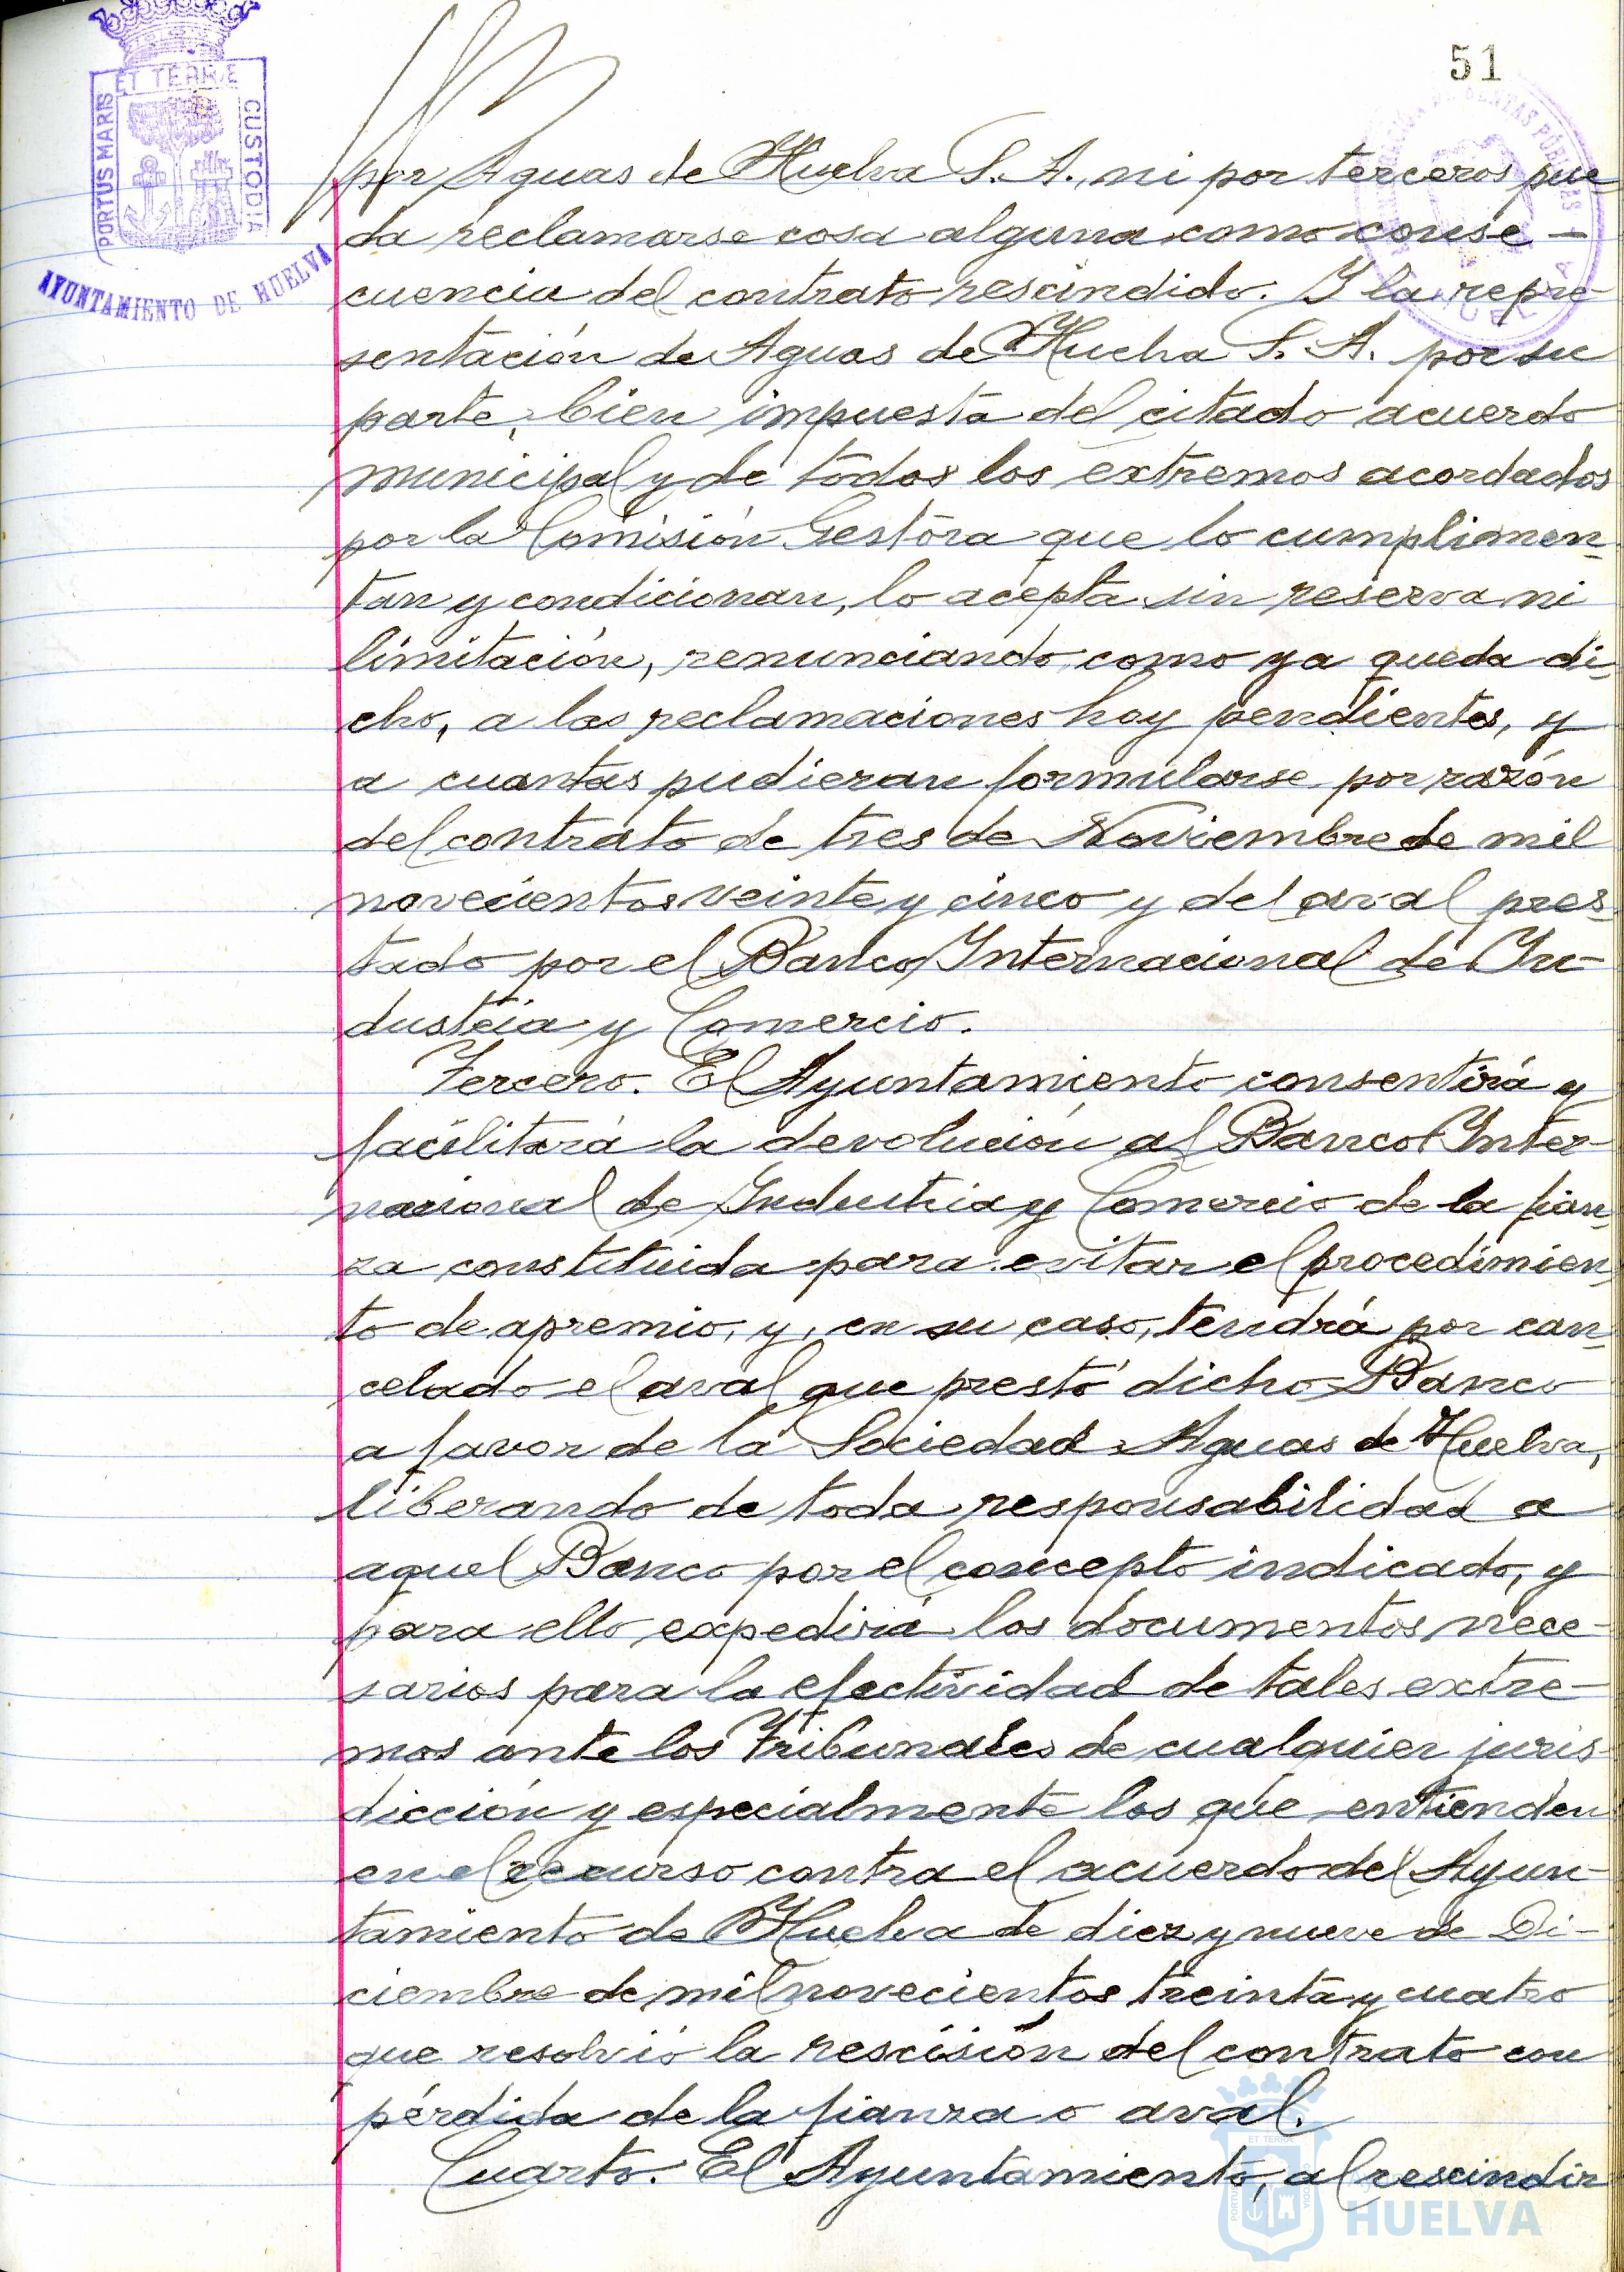 51
ET TERRÆ
PORTUS MARIS
CUSTODIA
AYUNTAMIENTO DE HUELVA
por Aguas de Huelva S. A., ni por terceros pue
da reclamarse cosa alguna como conse-
cuencia del contrato rescindido. Y la repre-
sentación de Aguas de Huelva S. A. por su
parte, bien impuesta del citado acuerdo
municipal y de todos los extremos acordados
por la Comisión Gestora que lo cumplimen-
tan y condicionan, lo acepta sin reserva ni
limitación, renunciando, como ya queda di-
cho, a las reclamaciones hoy pendientes, y
a cuantas pudieran formularse por razón
del contrato de tres de Noviembre de mil
novecientos veinte y cinco y del aval pres-
tado por el Banco Internacional de In-
dustria y Comercio.
Tercero. El Ayuntamiento consentirá y
facilitará la devolución al Banco Inter-
nacional de Industria y Comercio de la fian-
za constituida para evitar el procedimien-
to de apremio, y, en su caso, tendrá por can-
celado el aval que prestó dicho Banco
a favor de la Sociedad Aguas de Huelva,
liberando de toda responsabilidad a
aquel Banco por el concepto indicado, y
para ello expedirá los documentos nece-
sarios para la efectividad de tales extre-
mos ante los Tribunales de cualquier juris-
dicción y especialmente los que entienden
en el recurso contra el acuerdo del Ayun-
tamiento de Huelva de diez y nueve de Di-
ciembre de mil novecientos treinta y cuatro
que resolvió la rescisión del contrato con
pérdida de la fianza o aval.
Cuarto. El Ayuntamiento, al rescindir
HUELVA